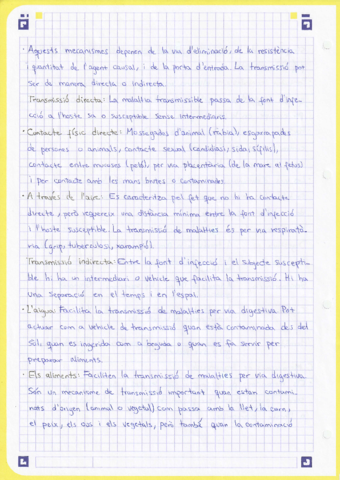 · Aquests mecanismes depenen de la via d'eliminació, de la resistència
i quantitat de l'agent causal, i de la porta d'entrada. La transmissió pot
ser de manera directa o indirecta.
Transmissió directa: La malaltia transmissible passa de la font d'infe-
cció a l'hoste sa o susceptible sense intermediaris.
· Contacte físic directe: Mossegades d'animal (ràbia), esgarrapades
de persones o animals, contacte sexual (candidiasi, sida, sífilis),
contacte entre mucoses (petó), per via placentària (de la mare al fetus)
i per contacte amb les mans brutes o contaminades.
· A través de l'aire: Es caracteritza pel fet que no hi ha contacte
directe, però requereix una distància mínima entre la font d'infecció
i l'hoste susceptible. La transmissió de malalties és per via respiratò-
ria (grip, tuberculosi, xarampió).
Transmissió indirecta: Entre la font d'infecció i el subjecte suscepti-
ble hi ha un intermediari o vehicle que facilita la transmissió. Hi ha
una separació en el temps i en l'espai.
· L'aigua: Facilita la transmissió de malalties per via digestiva. Pot
actuar com a vehicle de transmissió quan està contaminada des del
sòl, quan es ingerida com a beguda o quan es fa servir per
preparar aliments.
· Els aliments: Faciliten la transmissió de malalties per via digestiva.
Són un mecanisme de transmissió important quan estan contami-
nats d'origen (animal o vegetal) com passa amb la llet, la carn,
el peix, els ous i els vegetals, però també quan la contaminació